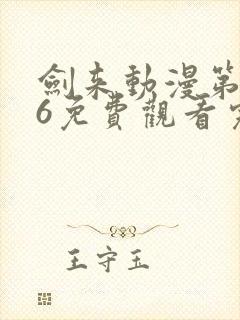 劍来動漫第
6免費觀看完
王守玉